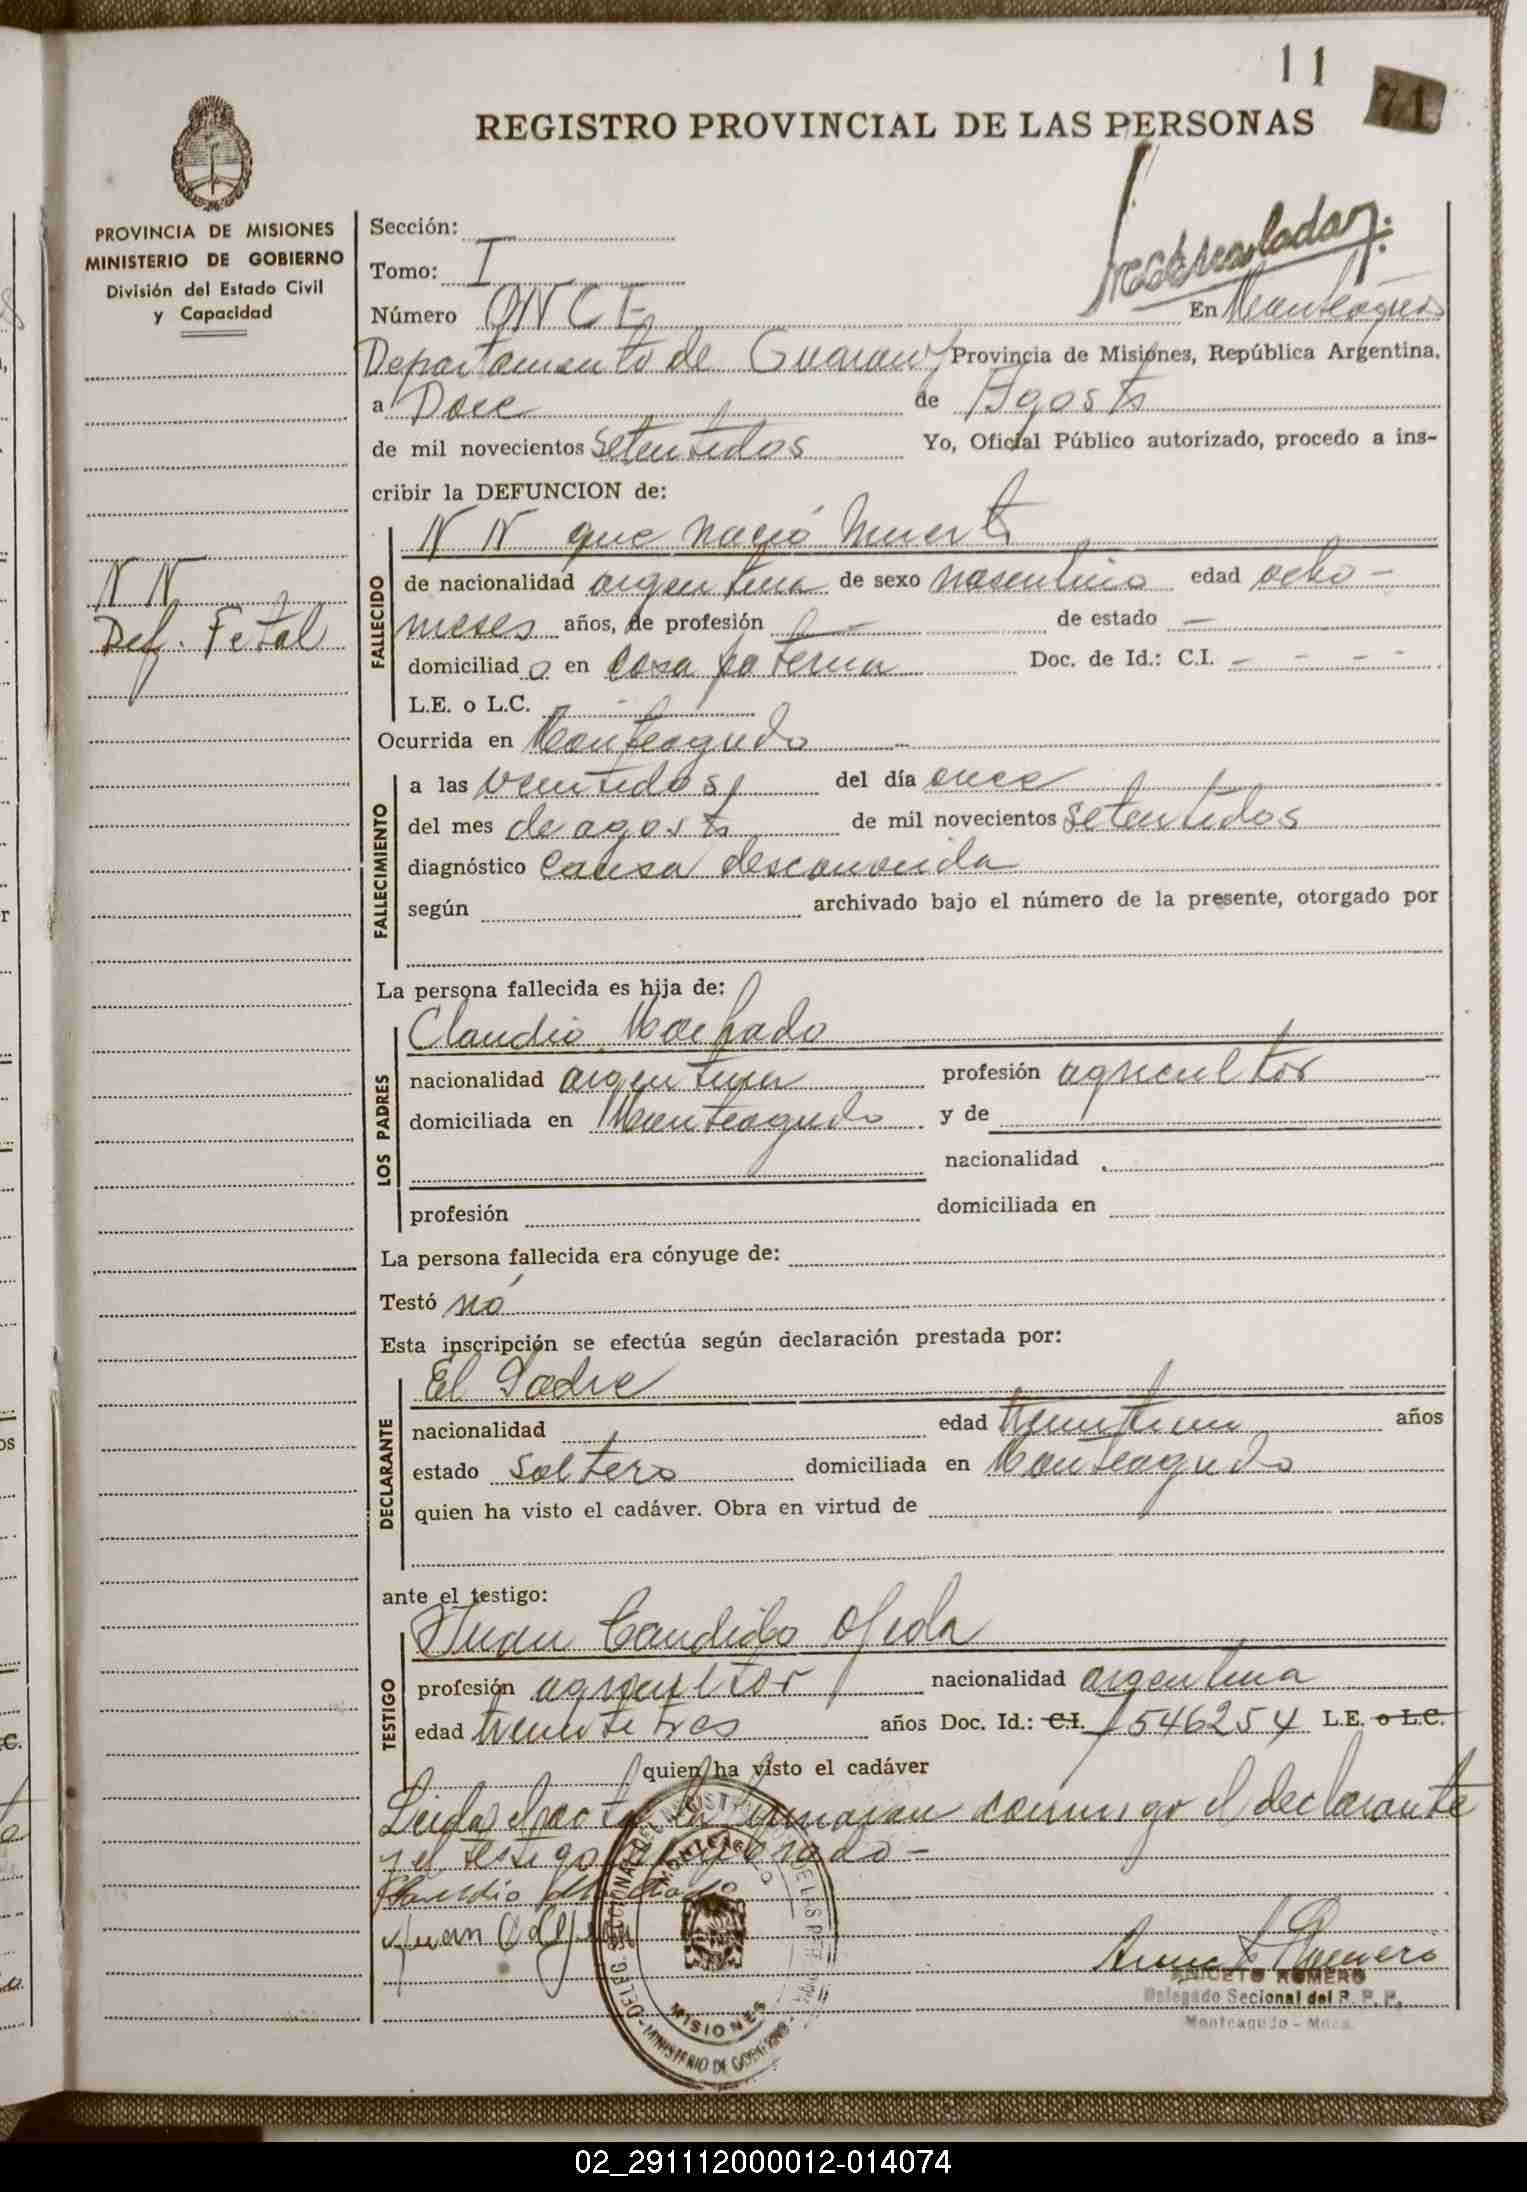 11
71
REGISTRO PROVINCIAL DE LAS PERSONAS
PROVINCIA DE MISIONES
MINISTERIO DE GOBIERNO
División del Estado Civil
y Capacidad
N N
Def. Fetal
Sección:
Tomo: I
Número ONCE En Monteagudo
Departamento de Guaraní Provincia de Misiones, República Argentina,
a Doce de Agosto
de mil novecientos Setentidos Yo, Oficial Público autorizado, procedo a ins-
cribir la DEFUNCION de:
N N que nació muerto
FALLECIDO
de nacionalidad argentina de sexo masculino edad ocho -
meses años, de profesión — de estado —
domiciliad o en casa paterna Doc. de Id.: C.I. - - - -
L.E. o L.C.
Ocurrida en Monteagudo
FALLECIMIENTO
a las ventidos, del día once
del mes de agosto de mil novecientos setentidos
diagnóstico causa desconocida
según archivado bajo el número de la presente, otorgado por
La persona fallecida es hija de:
LOS PADRES
Claudio Machado
nacionalidad argentina profesión agricultor
domiciliada en Monteagudo y de
nacionalidad
profesión domiciliada en
La persona fallecida era cónyuge de:
Testó nó
Esta inscripción se efectúa según declaración prestada por:
DECLARANTE
El Padre
nacionalidad edad años
estado soltero domiciliada en Monteagudo
quien ha visto el cadáver. Obra en virtud de
ante el testigo:
TESTIGO
Juan Candido Ojeda
profesión agricultor nacionalidad argentina
edad trentitres años Doc. Id.: C.I. 7546254 L.E. o L.C.
quien ha visto el cadáver
Leida el acta la firmaran conmigo el declarante
y el testigo
Claudio Machado
Juan C
ANICETO ROMERO
Delegado Secional del R. P. P.
Monteagudo - Mnes.
MONTEAGUDO
MISIONES
MINISTERIO DE GOBIERNO
02_291112000012-014074